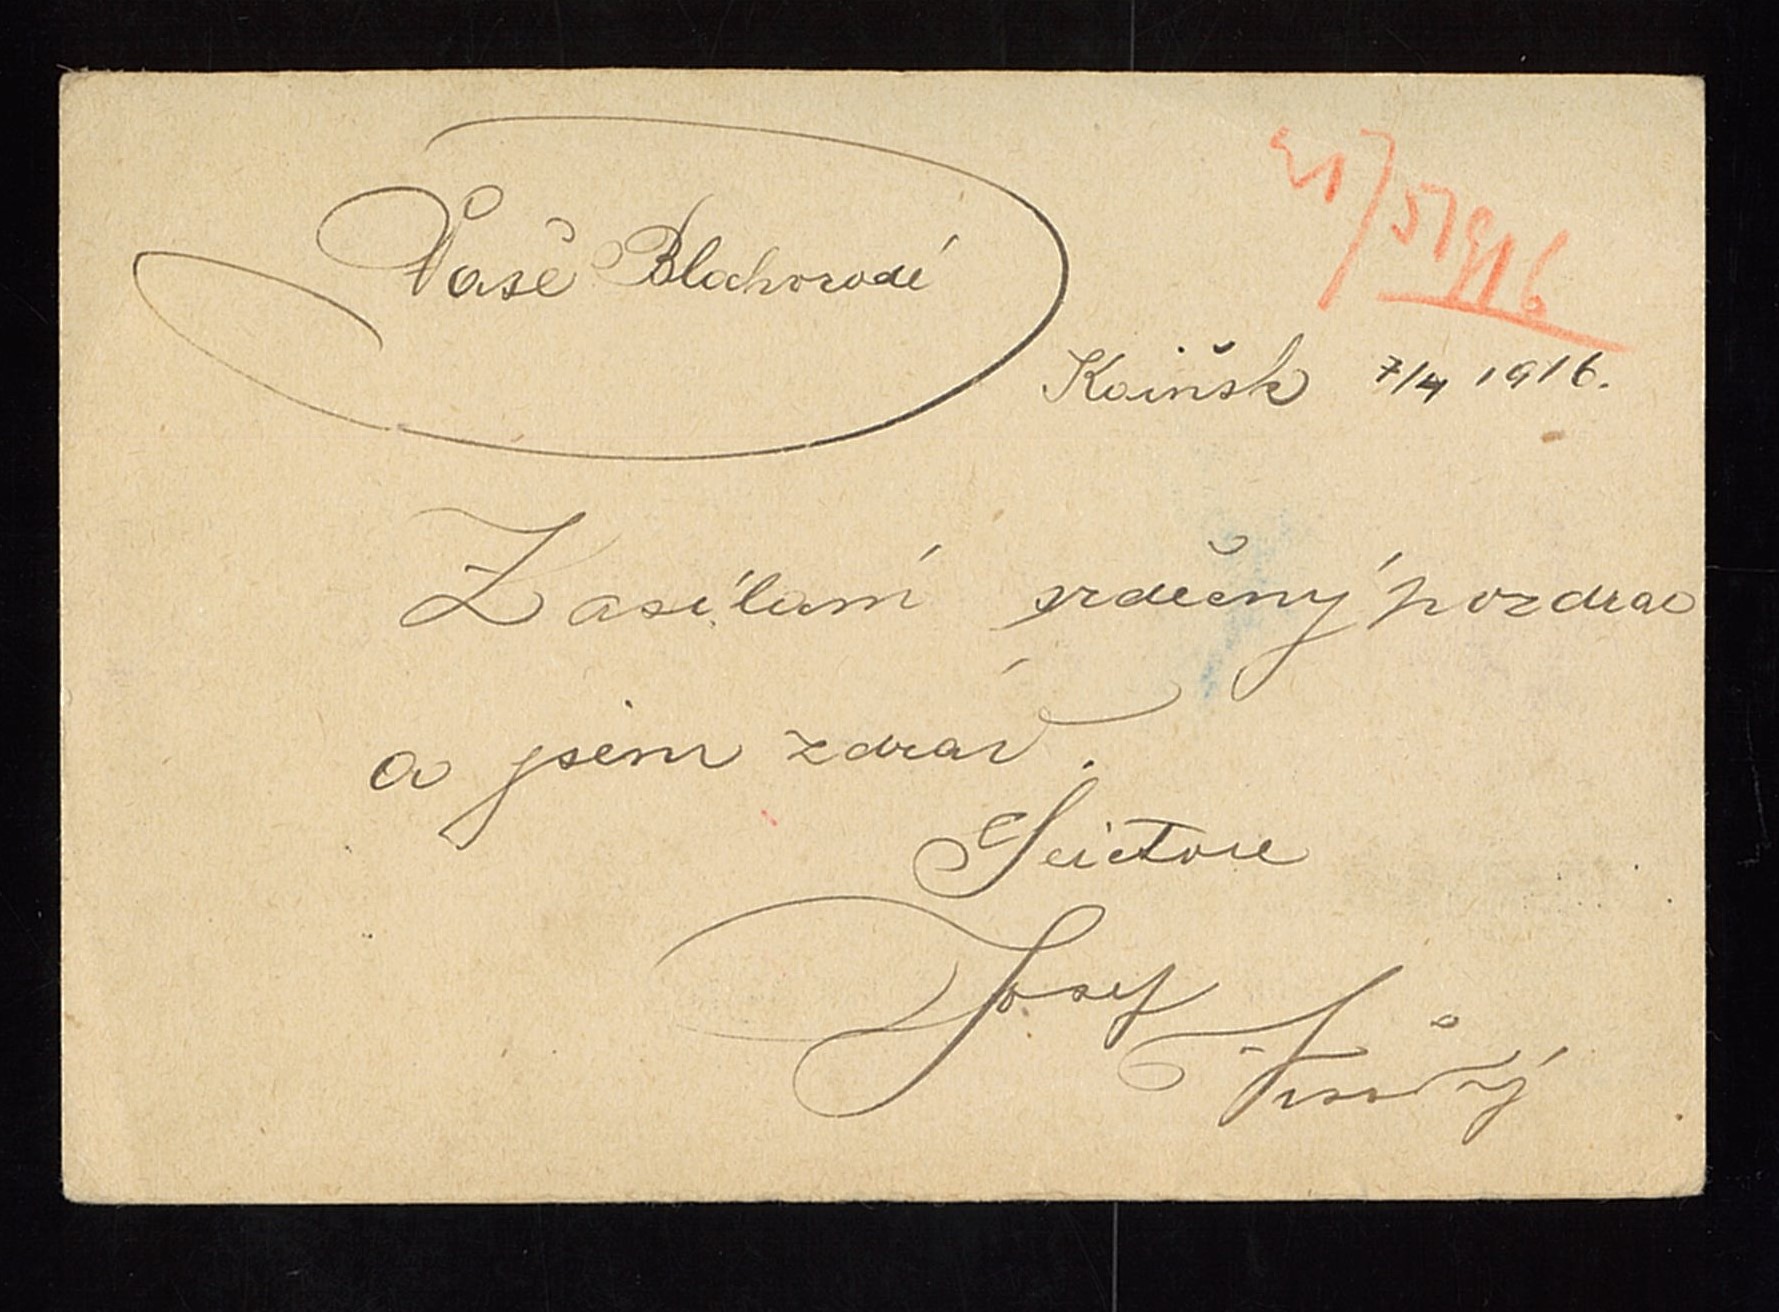 Vaše Blahorodí
21/5 1916
Kaiňsk 7/4 1916.
Zasílam srdečný pozdrav
a jsem zdráv.
Josef